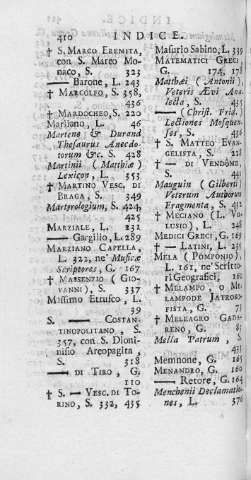 410 INDICE.
† S. MARCO EREMITA,
con S. Marco Mo-
naco, S. 323
—— Barone, L. 243
† MARCOLFO, S. 358,
436
† MARDOCHEO, S. 220
Mariliano, L. 46
Martene & Durand
Thesaurus Anecdo-
torum &c. S. 428
Martinii (Matthiæ)
Lexicon, L. 353
† MARTINO VESC. DI
BRAGA, S. 349
Martyrologium, S. 424,
425
MARZIALE, L. 232
—— Gargilio, L. 289
MARZIANO CAPELLA,
L. 322, ne' Musicæ
Scriptores, G. 167
† MASSENZIO (GIO-
VANNI), S. 337
Massimo Etrusco, L.
39
S. —— COSTAN-
TINOPOLITANO, S.
357, con S. Dioni-
nisio Areopagita,
S. 318
—— DI TIRO, G.
110
† S. —— VESC. DI TO-
RINO, S. 332, 435
Masurio Sabino, L. 339
MATEMATICI GRECI
G. 174, 178
Matthæi (Antonii)
Veteris Ævi Ana-
lecta, S. 435
—— (Christ. Frid.)
Lectiones Mosquen-
ses, S. 431
† S. MATTEO EVAN-
GELISTA, S. 218
† —— DI VENDÔME,
S.
Mauguin (Gilberti)
Veterum Authorum
Fragmenta, S.
† MECIANO (L. VO-
LUSIO), L. 248
MEDICI GRECI, G. 163
—— LATINI, L. 231
MELA (POMPONIO),
L. 161, ne' Scritto-
ri Geografici,
† MELAMPO, o ME-
LAMPODE JATROFI-
STA, G. 73
† MELEAGRO GADA-
RENO, G.
Mella Patrum, S.
Memnone, G. 165
MENANDRO, G. 160
—— Retore, G. 164
Menchenii Declamatio-
nes, L. 376